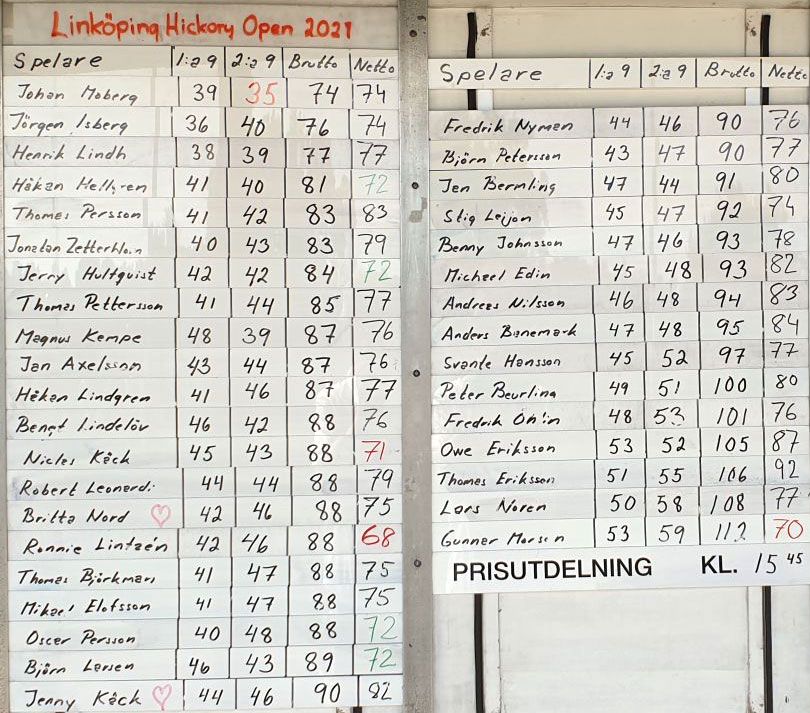 Linköping Hickory Open 2021
Spelare 1:a 9 2:a 9 Brutto Netto
Johan Moberg 39 35 74 74
Jörgen Isberg 36 40 76 74
Henrik Lindh 38 39 77 77
Håkan Hellgren 41 40 81 72
Thomas Persson 41 42 83 83
Jonatan Zetterblom 40 43 83 79
Jerry Hultquist 42 42 84 72
Thomas Pettersson 41 44 85 77
Magnus Kempe 48 39 87 76
Jan Axelsson 43 44 87 76
Håkan Lindgren 41 46 87 77
Bengt Lindelöv 46 42 88 76
Niclas Käck 45 43 88 71
Robert Leonardi 44 44 88 79
Britta Nord ♡ 42 46 88 75
Ronnie Lintzén 42 46 88 68
Thomas Björkman 41 47 88 75
Mikael Elofsson 41 47 88 75
Oscar Persson 40 48 88 72
Björn Larsen 46 43 89 72
Jenny Käck ♡ 44 46 90 82
Spelare 1:a 9 2:a 9 Brutto Netto
Fredrik Nyman 44 46 90 76
Björn Petersson 43 47 90 77
Jan Bermling 47 44 91 80
Stig Leijon 45 47 92 74
Benny Johnsson 47 46 93 78
Michael Edin 45 48 93 82
Andreas Nilsson 46 48 94 83
Anders Banemark 47 48 95 84
Svante Hansson 45 52 97 77
Peter Beurling 49 51 100 80
Fredrik 48 53 101 76
Owe Eriksson 53 52 105 87
Thomas Eriksson 51 55 106 92
Lars Noren 50 58 108 77
Gunnar 53 59 112 70
PRISUTDELNING KL. 15 45